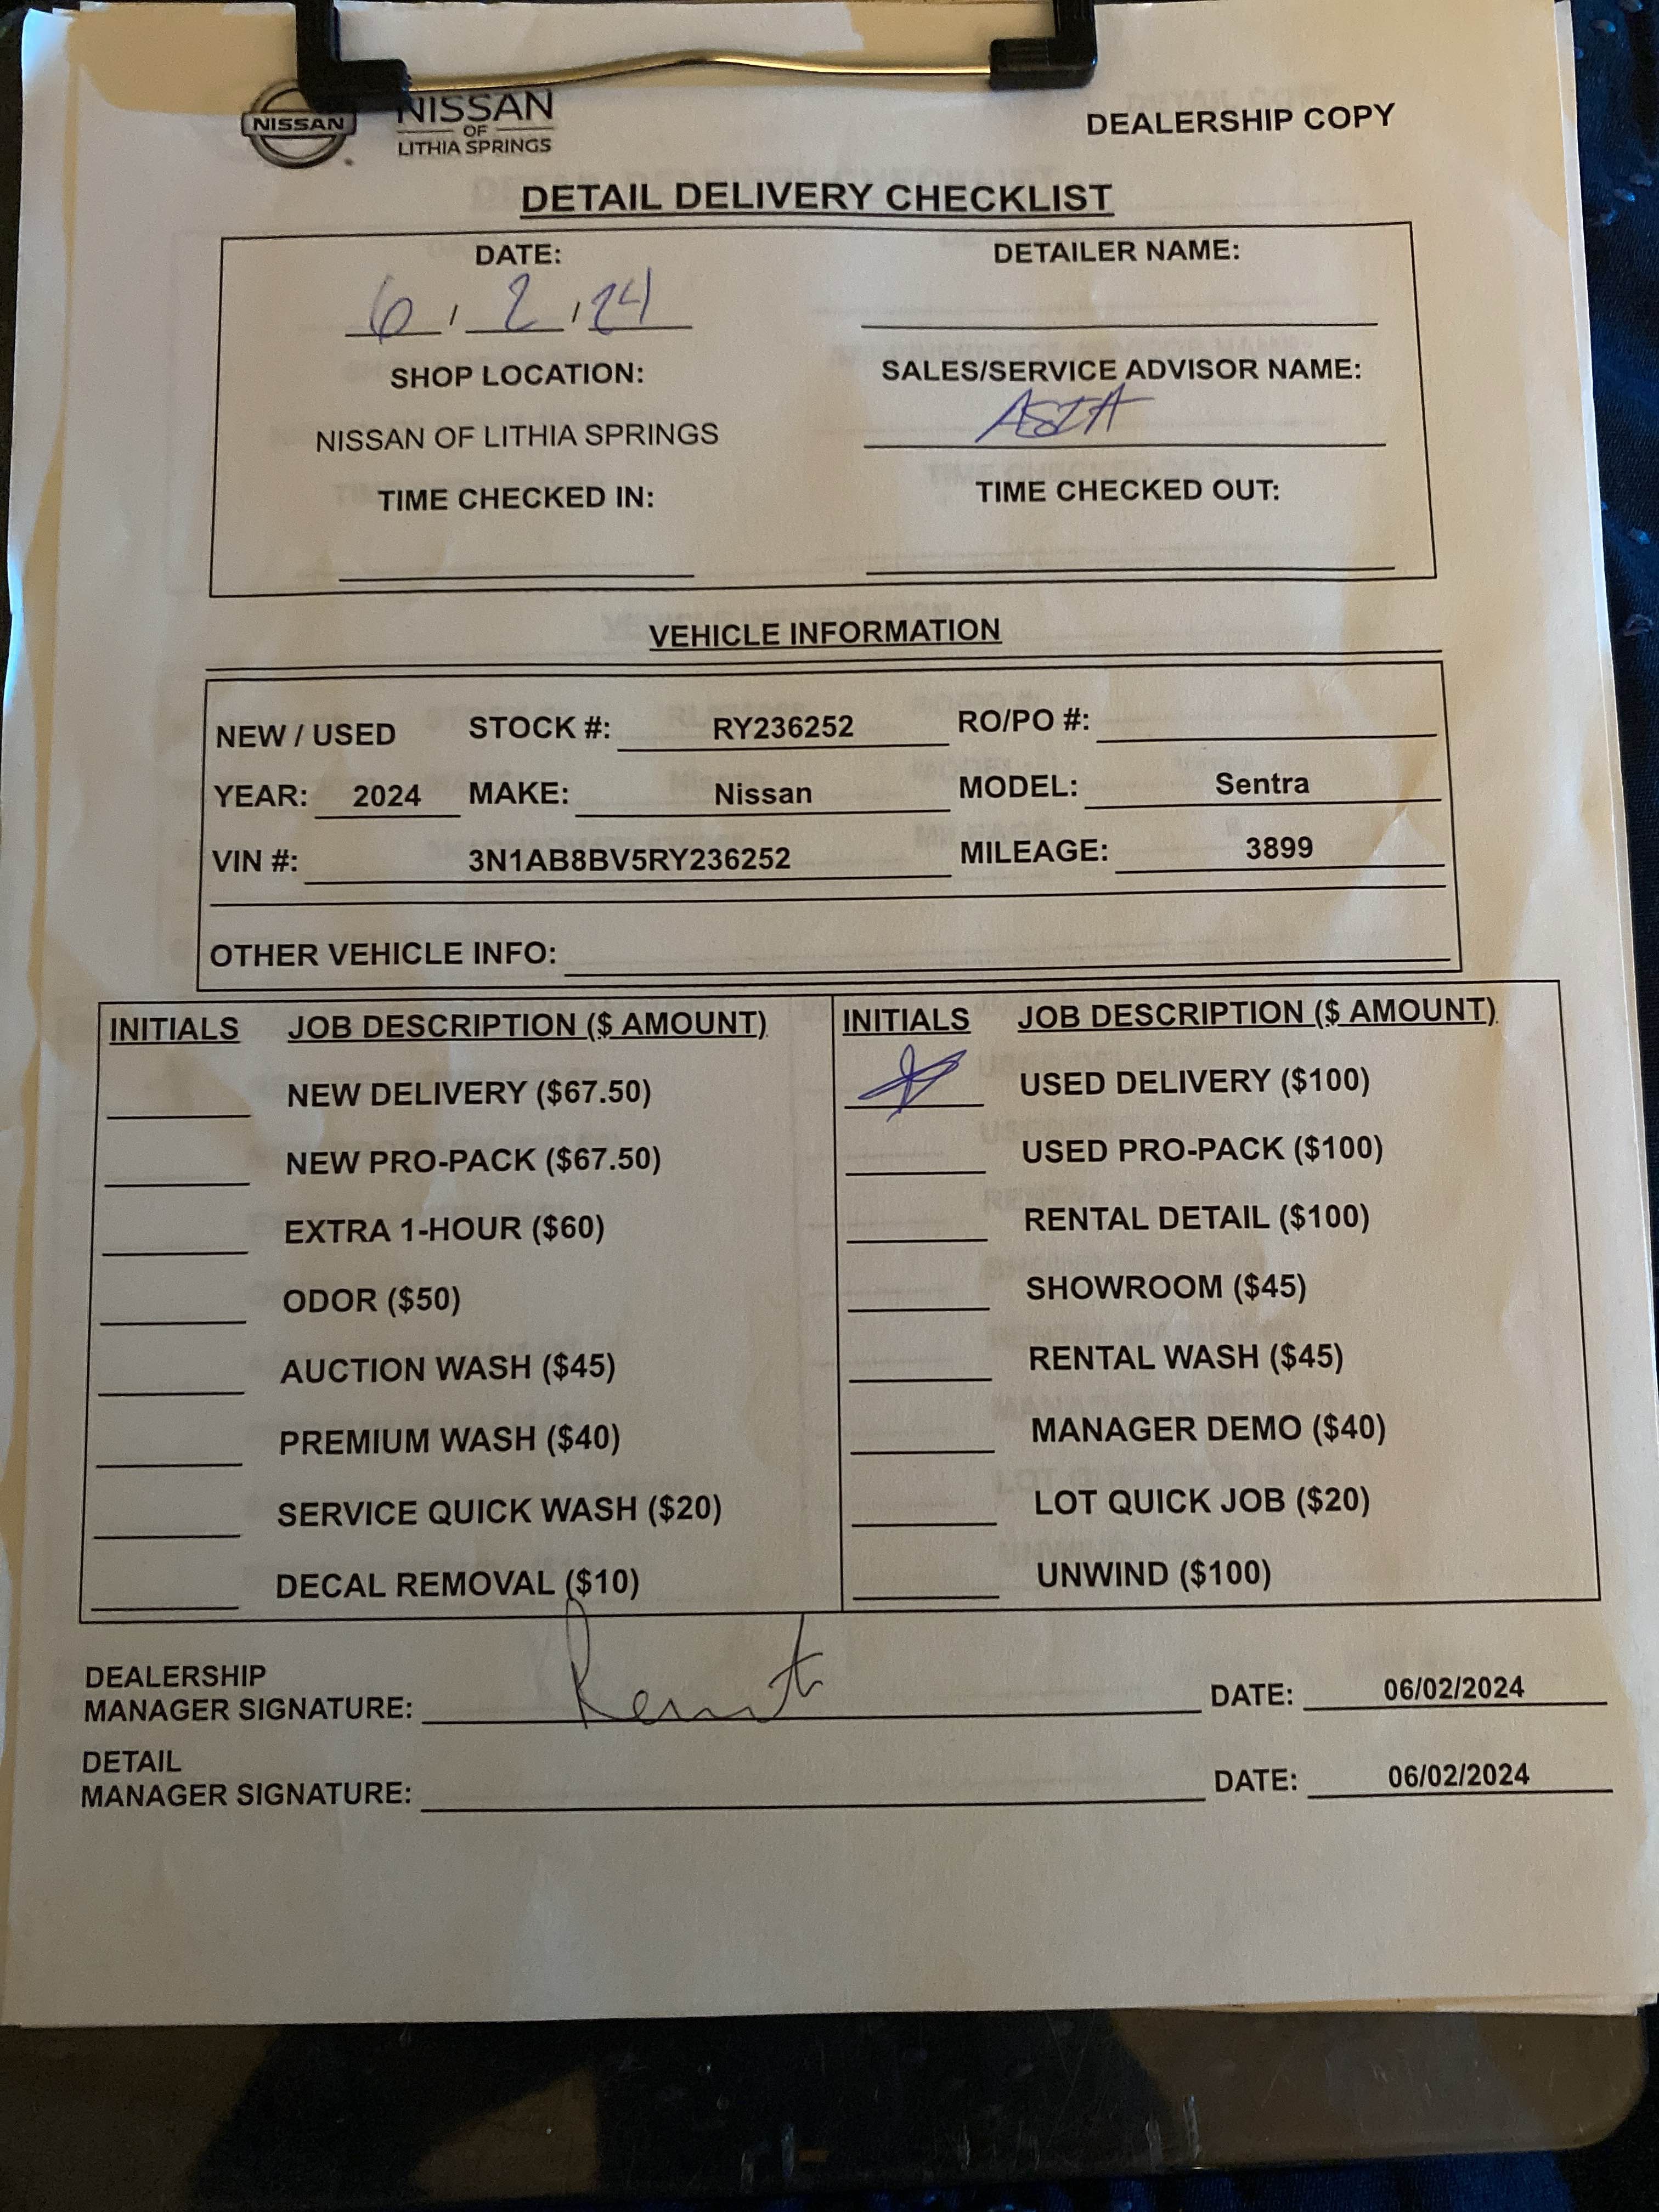 NISSAN
NISSAN
OF
LITHIA SPRINGS
DEALERSHIP COPY
DETAIL DELIVERY CHECKLIST
DATE:
6 / 2 / 24
DETAILER NAME:
SHOP LOCATION:
NISSAN OF LITHIA SPRINGS
SALES/SERVICE ADVISOR NAME:
ASIA
TIME CHECKED IN:
TIME CHECKED OUT:
VEHICLE INFORMATION
NEW / USED STOCK #: RY236252 RO/PO #:
YEAR: 2024 MAKE: Nissan MODEL: Sentra
VIN #: 3N1AB8BV5RY236252 MILEAGE: 3899
OTHER VEHICLE INFO:
INITIALS JOB DESCRIPTION ($ AMOUNT)
NEW DELIVERY ($67.50)
NEW PRO-PACK ($67.50)
EXTRA 1-HOUR ($60)
ODOR ($50)
AUCTION WASH ($45)
PREMIUM WASH ($40)
SERVICE QUICK WASH ($20)
DECAL REMOVAL ($10)
INITIALS JOB DESCRIPTION ($ AMOUNT)
USED DELIVERY ($100)
USED PRO-PACK ($100)
RENTAL DETAIL ($100)
SHOWROOM ($45)
RENTAL WASH ($45)
MANAGER DEMO ($40)
LOT QUICK JOB ($20)
UNWIND ($100)
DEALERSHIP
MANAGER SIGNATURE: DATE: 06/02/2024
DETAIL
MANAGER SIGNATURE: DATE: 06/02/2024